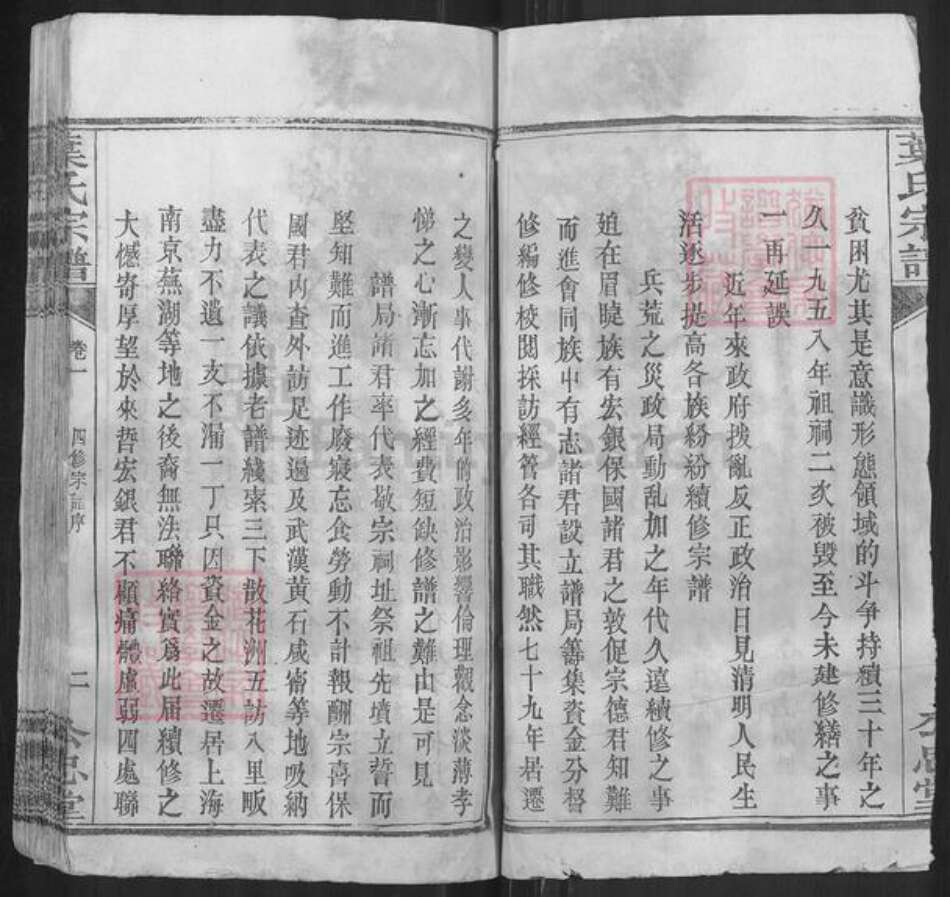 葉氏宗譜
貧困尤其是意識形態領域的斗爭持續三十年之
久一九五八年祖祠二次被毀至今未建修繕之事
一再延誤
近年來政府撥亂反正政治日見清明人民生
活逐步提高各族紛紛續修宗譜
兵荒之災政局動乱加之年代久遠續修之事
迫在眉睫族有宏銀保國諸君之敦促宗德君知難
而進會同族中有志諸君設立譜局籌集資金分督
修編修校閱採訪經管各司其職然七十九年居遷
之變人事代謝多年的政治影響倫理觀念淡薄孝
悌之心漸忘加之經費短缺修譜之難由是可見
譜局諸君率代表敬宗祠址祭祖先墳立誓而
堅知難而進工作廢寢忘食勞動不計報酬宗喜保
國君內查外訪足迹遍及武漢黃石咸甯等地吸納
代表之議依據老譜綫索三下散花洲五訪入里畈
盡力不遺一支不漏一丁只因資金之故遷居上海
南京蕪湖等地之後裔無法聯絡實爲此届續修之
大憾寄厚望於來哲宏銀君不顧痛體虛弱四處聯
葉氏宗譜
卷一
四修宗譜序
二